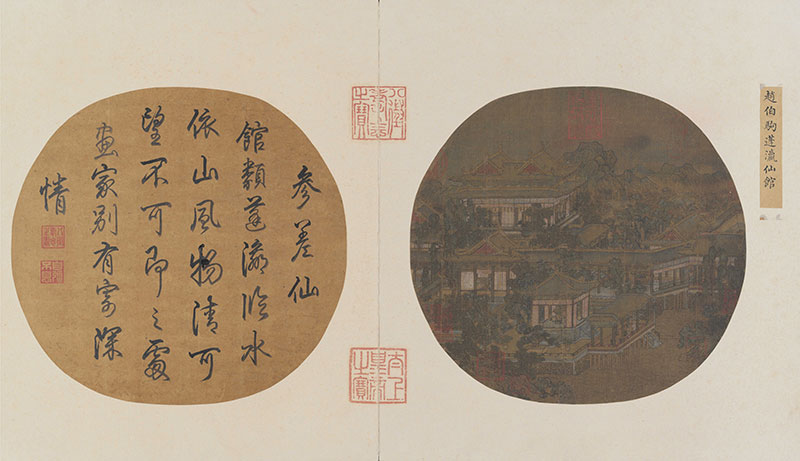 趙伯駒蓬瀛仙館
八徵
耄念
之寶
太上
皇帝
之寶
參差仙
館類蓬瀛臨水
依山風物清可
望不可即之處
畫家別有寄深
情